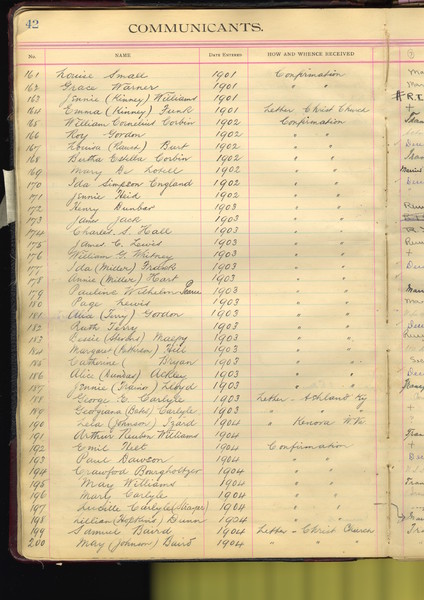 42
COMMUNICANTS.
No. NAME DATE ENTERED HOW AND WHENCE RECEIVED
161 Louise Small 1901 Confirmation
162 Grace Warner 1901 " "
163 Jennie (Kinney) Williams 1901 " "
164 Emma (Kinney) Funk 1901 Letter Christ Church
165 William Cornelius Corbin 1902 Confirmation
166 Roy Gordon 1902 " "
167 Louisa Burt 1902 " "
168 Bertha Estella Corbin 1902 " "
169 Mary De Lovell 1902 " "
170 Ida Simpson England 1902 " "
171 Jennie Reid 1902 " "
172 Henry Dunbar 1903 " "
173 Jane Jack 1903 " "
174 Charles S. Hall 1903 " "
175 James C. Lewis 1903 " "
176 William G. Whitney 1903 " "
177 Ida (Miller) 1903 " "
178 Annie (Miller) Hart 1903 " "
179 Pauline Wilhelmina 1903 " "
180 Page Lewis 1903 " "
181 (Terry) Gordon 1903 " "
182 Ruth Terry 1903 " "
183 Essie (Stevens) 1903 " "
184 Margaret (Patterson) Hill 1903 " "
185 Catherine ( Bryan 1903 " "
186 Alice (Dundas) Ackley 1903 " "
187 Jennie Lloyd 1903 " "
188 George E. Carlyle 1903 Letter - Ashland Ky
189 Georgiana (Bates) Carlyle 1903 " "
190 Lela (Johnson) Izard 1904 " Kenova W.Va
191 Arthur Reuben Williams 1904 "
192 Emil 1904 Confirmation
193 Paul Dawson 1904 " "
194 Crawford Bourgholtzer 1904 " "
195 May Williams 1904 " "
196 Mary Carlyle 1904 " "
197 Lucille Carlyle 1904 " "
198 Lillian (Hopkins) Dunn 1904 " "
199 Samuel Baird 1904 Letter - Christ Church
200 May (Johnson) Baird 1904 " "